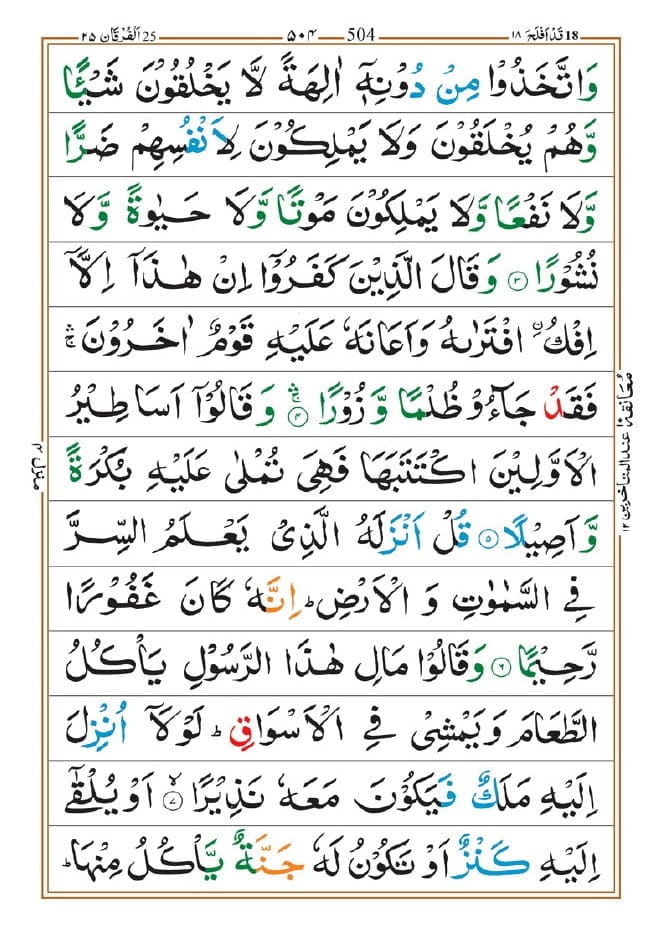 18 قَدْ اَفْلَحَ ١٨ 504 ٥٠٤ 25 اَلْفُرْقَان ٢٥
وَاتَّخَذُوْا مِنْ دُوْنِهٖۤ اٰلِهَةً لَّا يَخْلُقُوْنَ شَيْـًٔا
وَّهُمْ يُخْلَقُوْنَ وَلَا يَمْلِكُوْنَ لِاَنْفُسِهِمْ ضَرًّا
وَّلَا نَفْعًا وَّلَا يَمْلِكُوْنَ مَوْتًا وَّلَا حَيٰوةً وَّلَا
نُشُوْرًا ۝٣ وَقَالَ الَّذِيْنَ كَفَرُوْۤا اِنْ هٰذَاۤ اِلَّاۤ
اِفْكُ ۨافْتَرٰىهُ وَاَعَانَهٗ عَلَيْهِ قَوْمٌ اٰخَرُوْنَ ۛۚ
فَقَدْ جَآءُوْ ظُلْمًا وَّزُوْرًا ۛۚ۝٤ وَقَالُوْۤا اَسَاطِيْرُ
الْاَوَّلِيْنَ اكْتَتَبَهَا فَهِيَ تُمْلٰى عَلَيْهِ بُكْرَةً
وَّاَصِيْلًا ۝٥ قُلْ اَنْزَلَهُ الَّذِيْ يَعْلَمُ السِّرَّ
فِي السَّمٰوٰتِ وَ الْاَرْضِ ؕ اِنَّهٗ كَانَ غَفُوْرًا
رَّحِيْمًا ۝٦ وَقَالُوْا مَالِ هٰذَا الرَّسُوْلِ يَاْكُلُ
الطَّعَامَ وَيَمْشِيْ فِي الْاَسْوَاقِ ؕ لَوْلَاۤ اُنْزِلَ
اِلَيْهِ مَلَكٌ فَيَكُوْنَ مَعَهٗ نَذِيْرًا ۙ۝٧ اَوْ يُلْقٰۤى
اِلَيْهِ كَنْزٌ اَوْ تَكُوْنُ لَهٗ جَنَّةٌ يَّاْكُلُ مِنْهَا ؕ
معانقة عند المتاخرين ١٢
منزل ٤